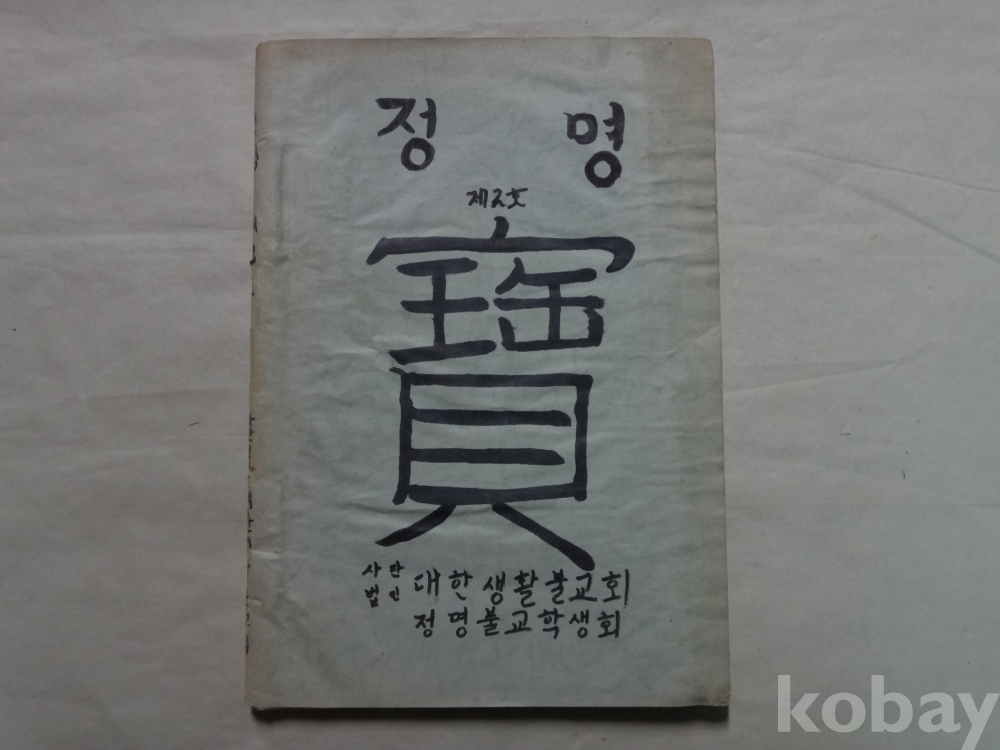 정 명
제2호
寶
사단법인 대한생활불교회
정명불교학생회
kobay